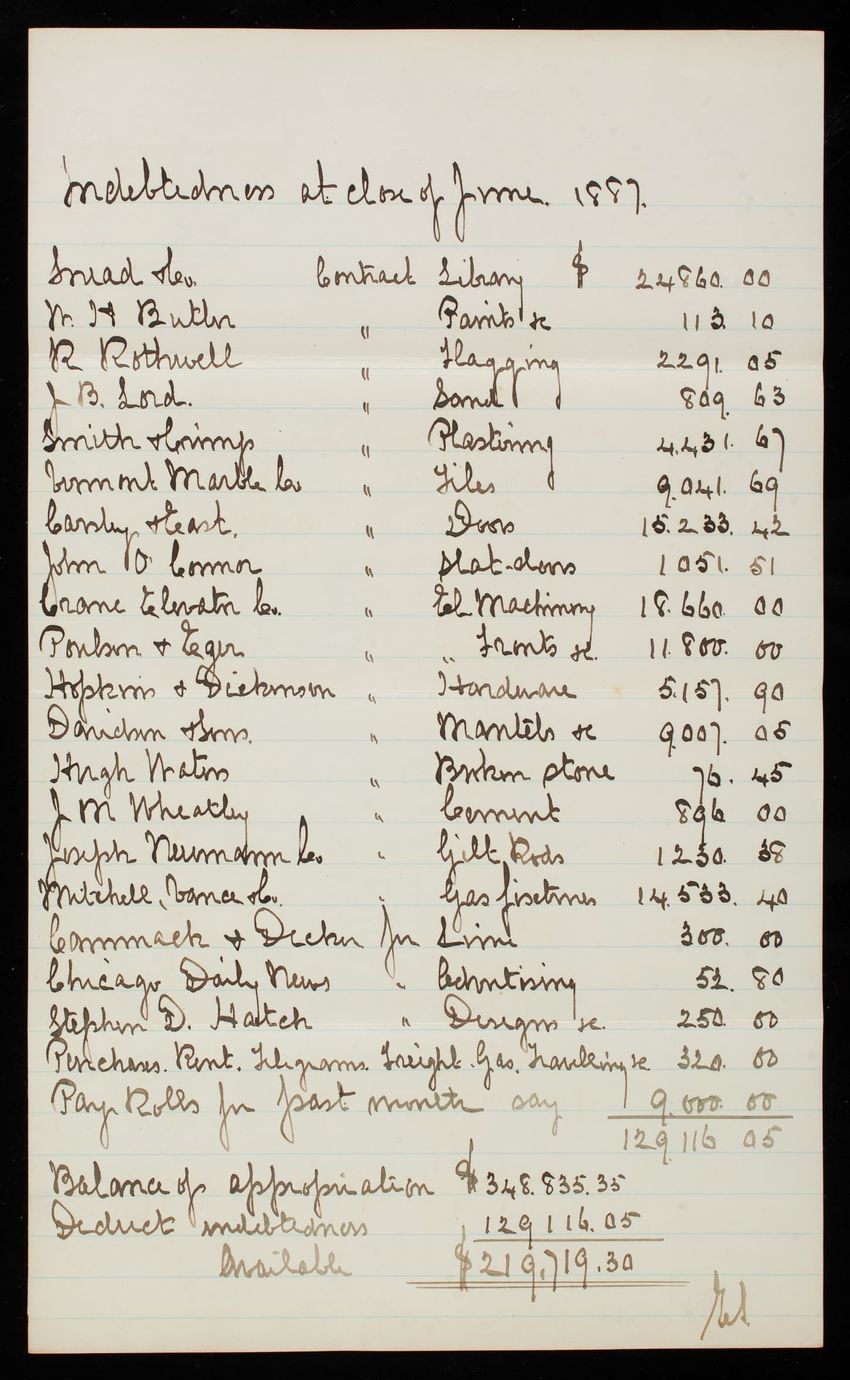 Indebtedness at close of June. 1887.
Snead & Co. Contract Library $ 24860. 00
W. H Butler " Paints &c 113. 10
R Rothwell " Flagging 2291. 05
J. B. Lord. " Sand 809. 63
Smith & Crimp " Plastering 4.431. 67
Vermont Marble Co " Tiles 9.041. 69
Carsley & East. " Doors 15.233. 42
John O'Connor " Slat-doors 1051. 51
Crane Elevator Co. " El. Machinery 18.660. 00
Poulson & Eger " " Fronts &c. 11.800. 00
Hopkins & Dickinson " Hardware 5.157. 90
Davidson & Sons. " Mantels &c 9.007. 05
Hugh Waters " Broken stone 76. 45
J M Wheatley " Cement 896 00
Joseph Neumann Co " Gilt Rods 1230. 38
Mitchell, Vance & Co. " Gas fixtures 14.533. 40
Cammack & Decker for Lime 300. 00
Chicago Daily News " Advertising 52. 80
Stephen D. Hatch " Designs &c. 250. 00
Purchases. Rent. Telegrams. Freight. Gas. Travelling &c 320. 00
Pay Rolls for past month say 9.000. 00
129.116 05
Balance of appropriation $348.835.35
Deduct indebtedness 129116.05
Available $219,719.30